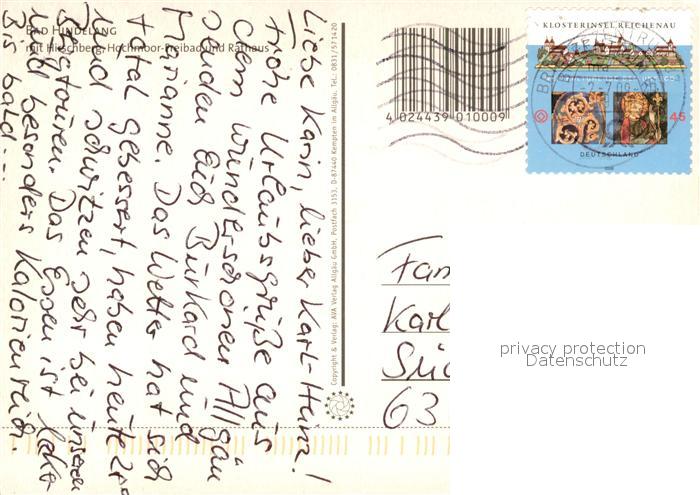 BAD HINDELANG
mit Hirschberg, Hochmoor-Freibad und Rathaus
Liebe Karin, lieber Karl-Heinz!
Frohe Urlaubsgrüße aus
dem wunderschönen Allgäu
senden Euch Burkard und
Marianne. Das Wetter hat sich
total gebessert, haben heute
und schwitzen sehr bei unseren
Bergtouren. Das Essen ist lecker
und besonders Kalorienreich.
Bis bald...
Copyright & Verlag: AVA Verlag Allgäu GmbH, Postfach 3153, D-87440 Kempten im Allgäu, Tel.: 0831/571420
4 024439 010009
KLOSTERINSEL REICHENAU
45
DEUTSCHLAND
Fam
Karl
Sü
63
privacy protection
Datenschutz